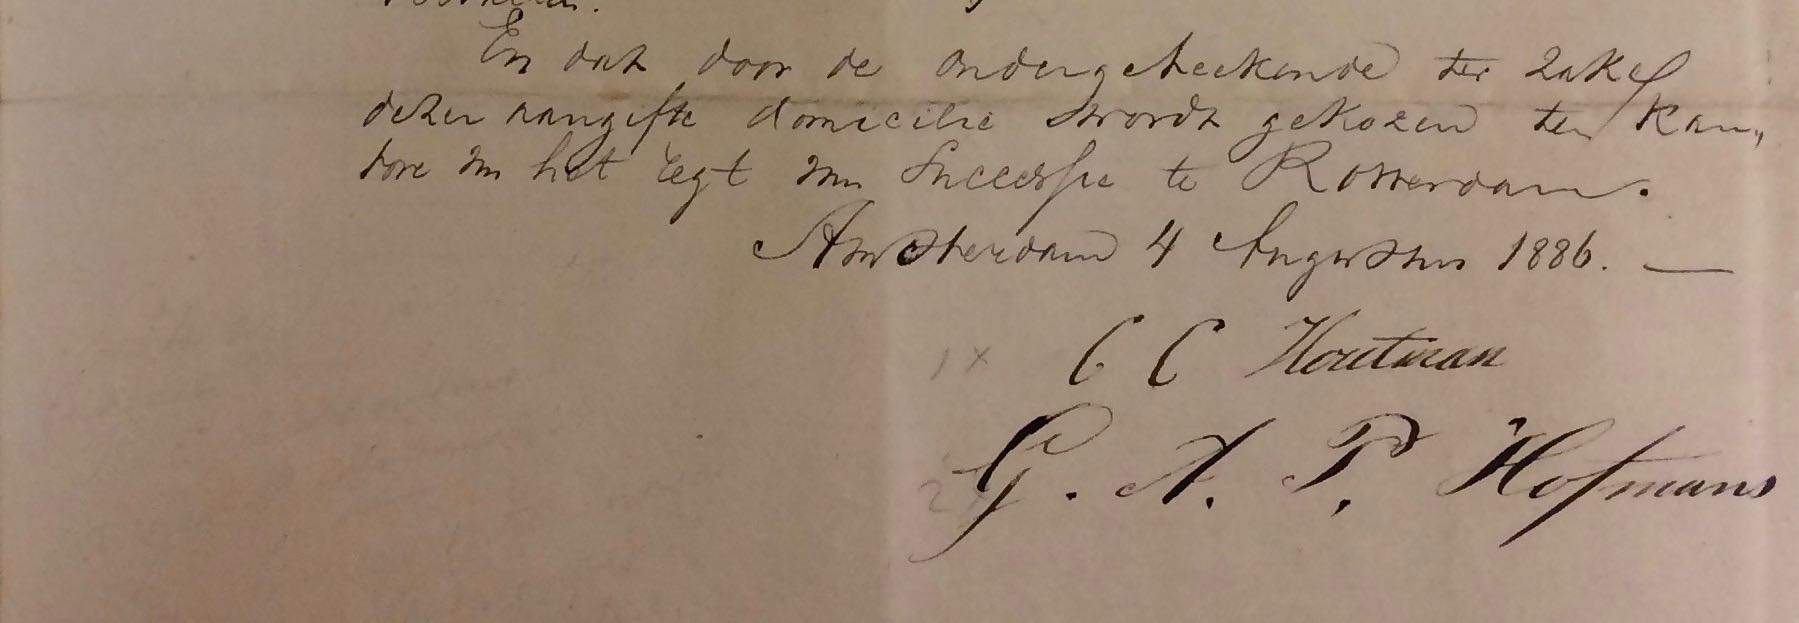 En dat door de ondergeteekende ter zake
dezer aangifte domicilie wordt gekozen ten Kan„
tore van het regt van Successie te Rotterdam.
Amsterdam 4 Augustus 1886. —
1x C C Houtman
2x G. A. P. Hofmans